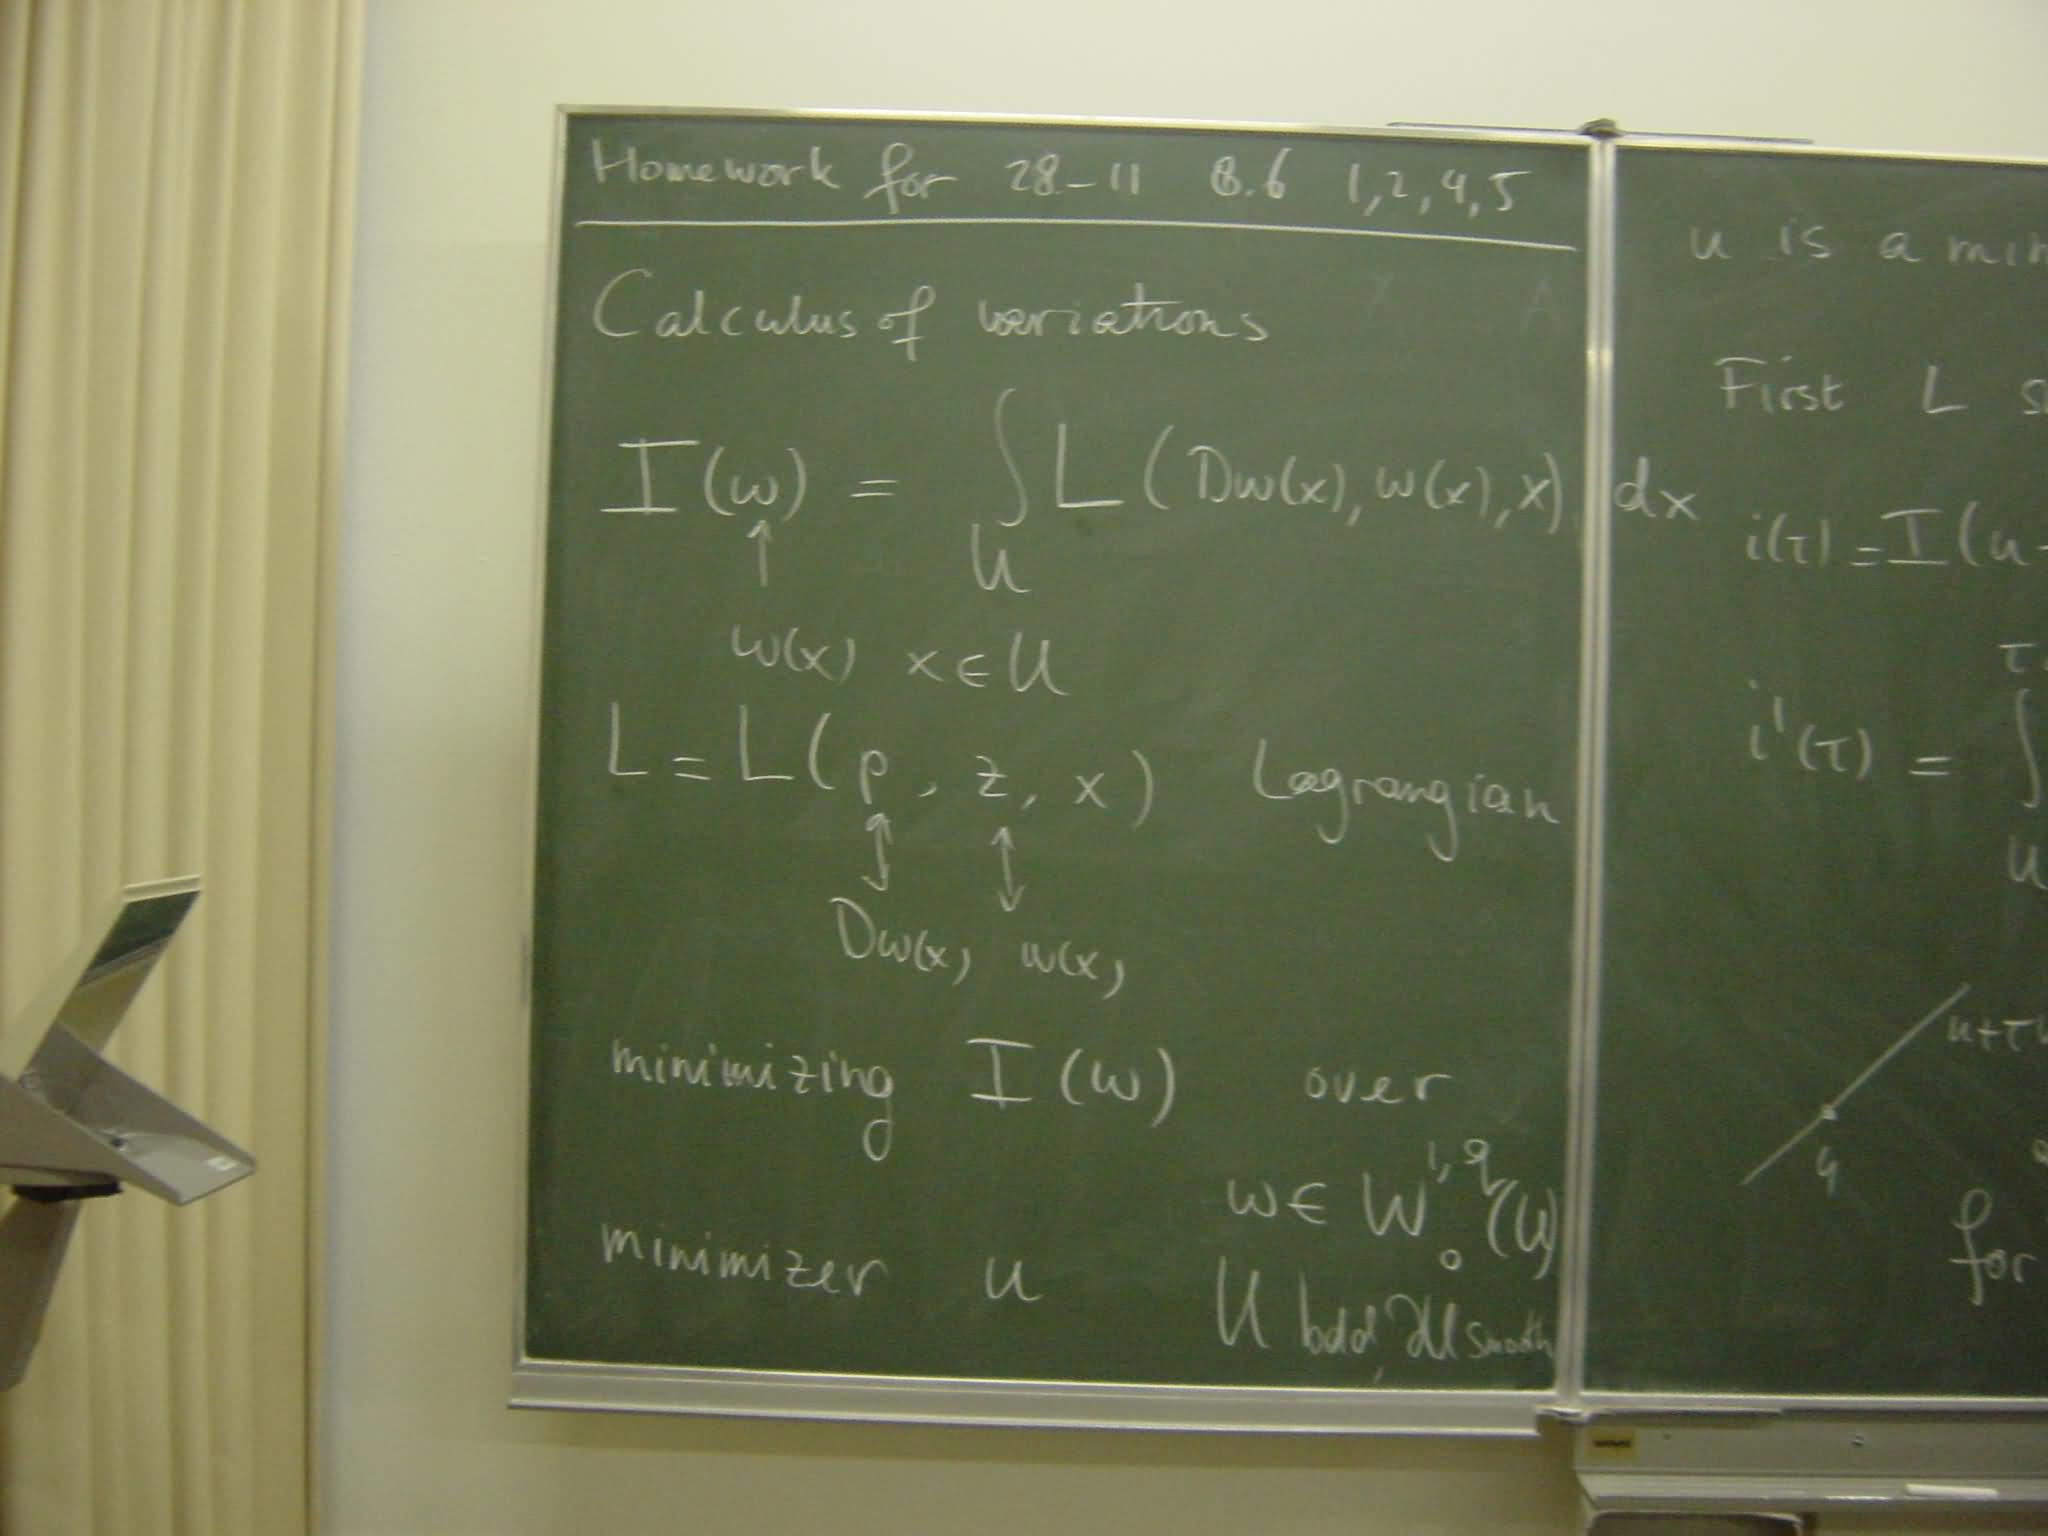 Homework for 28-11 8.6 1,2,4,5
Calculus of variations
I(w) = ∫ L(Dw(x), w(x), x) dx
U
↑
w(x) x∈U
L = L(p, z, x) Lagrangian
↕ ↕
Dw(x) w(x)
minimizing I(w) over
w∈W₀^{1,q}(U)
minimizer u
U bdd, ∂U smooth
u is a min
First L
i(τ) = I(u
i'(τ) = ∫
U
u+τ
u
for